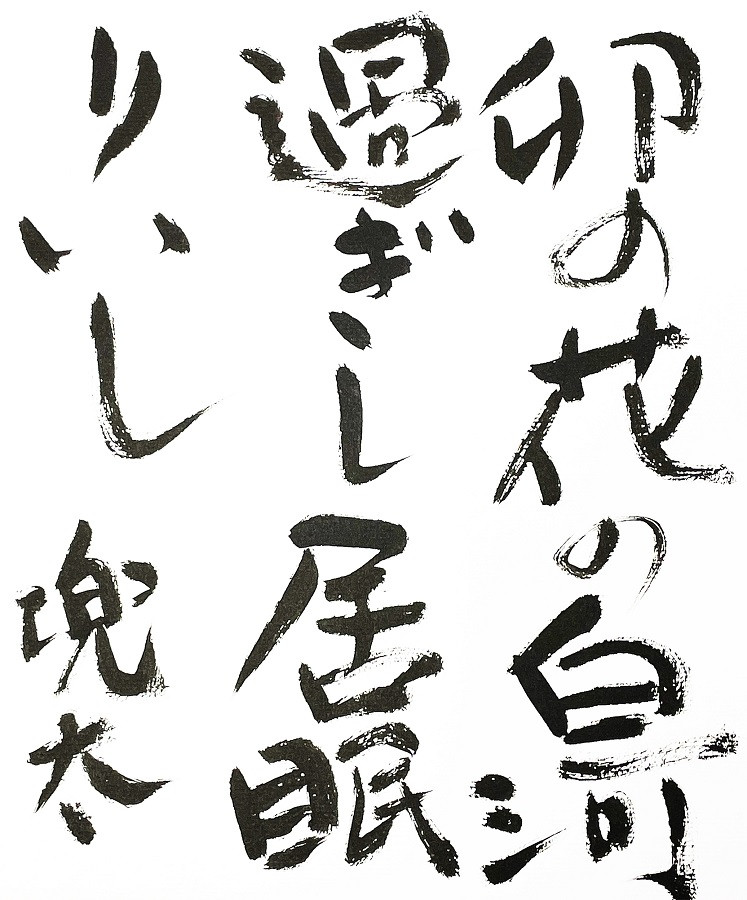 卯の花の白河
過ぎし居眠
りいし 兜太